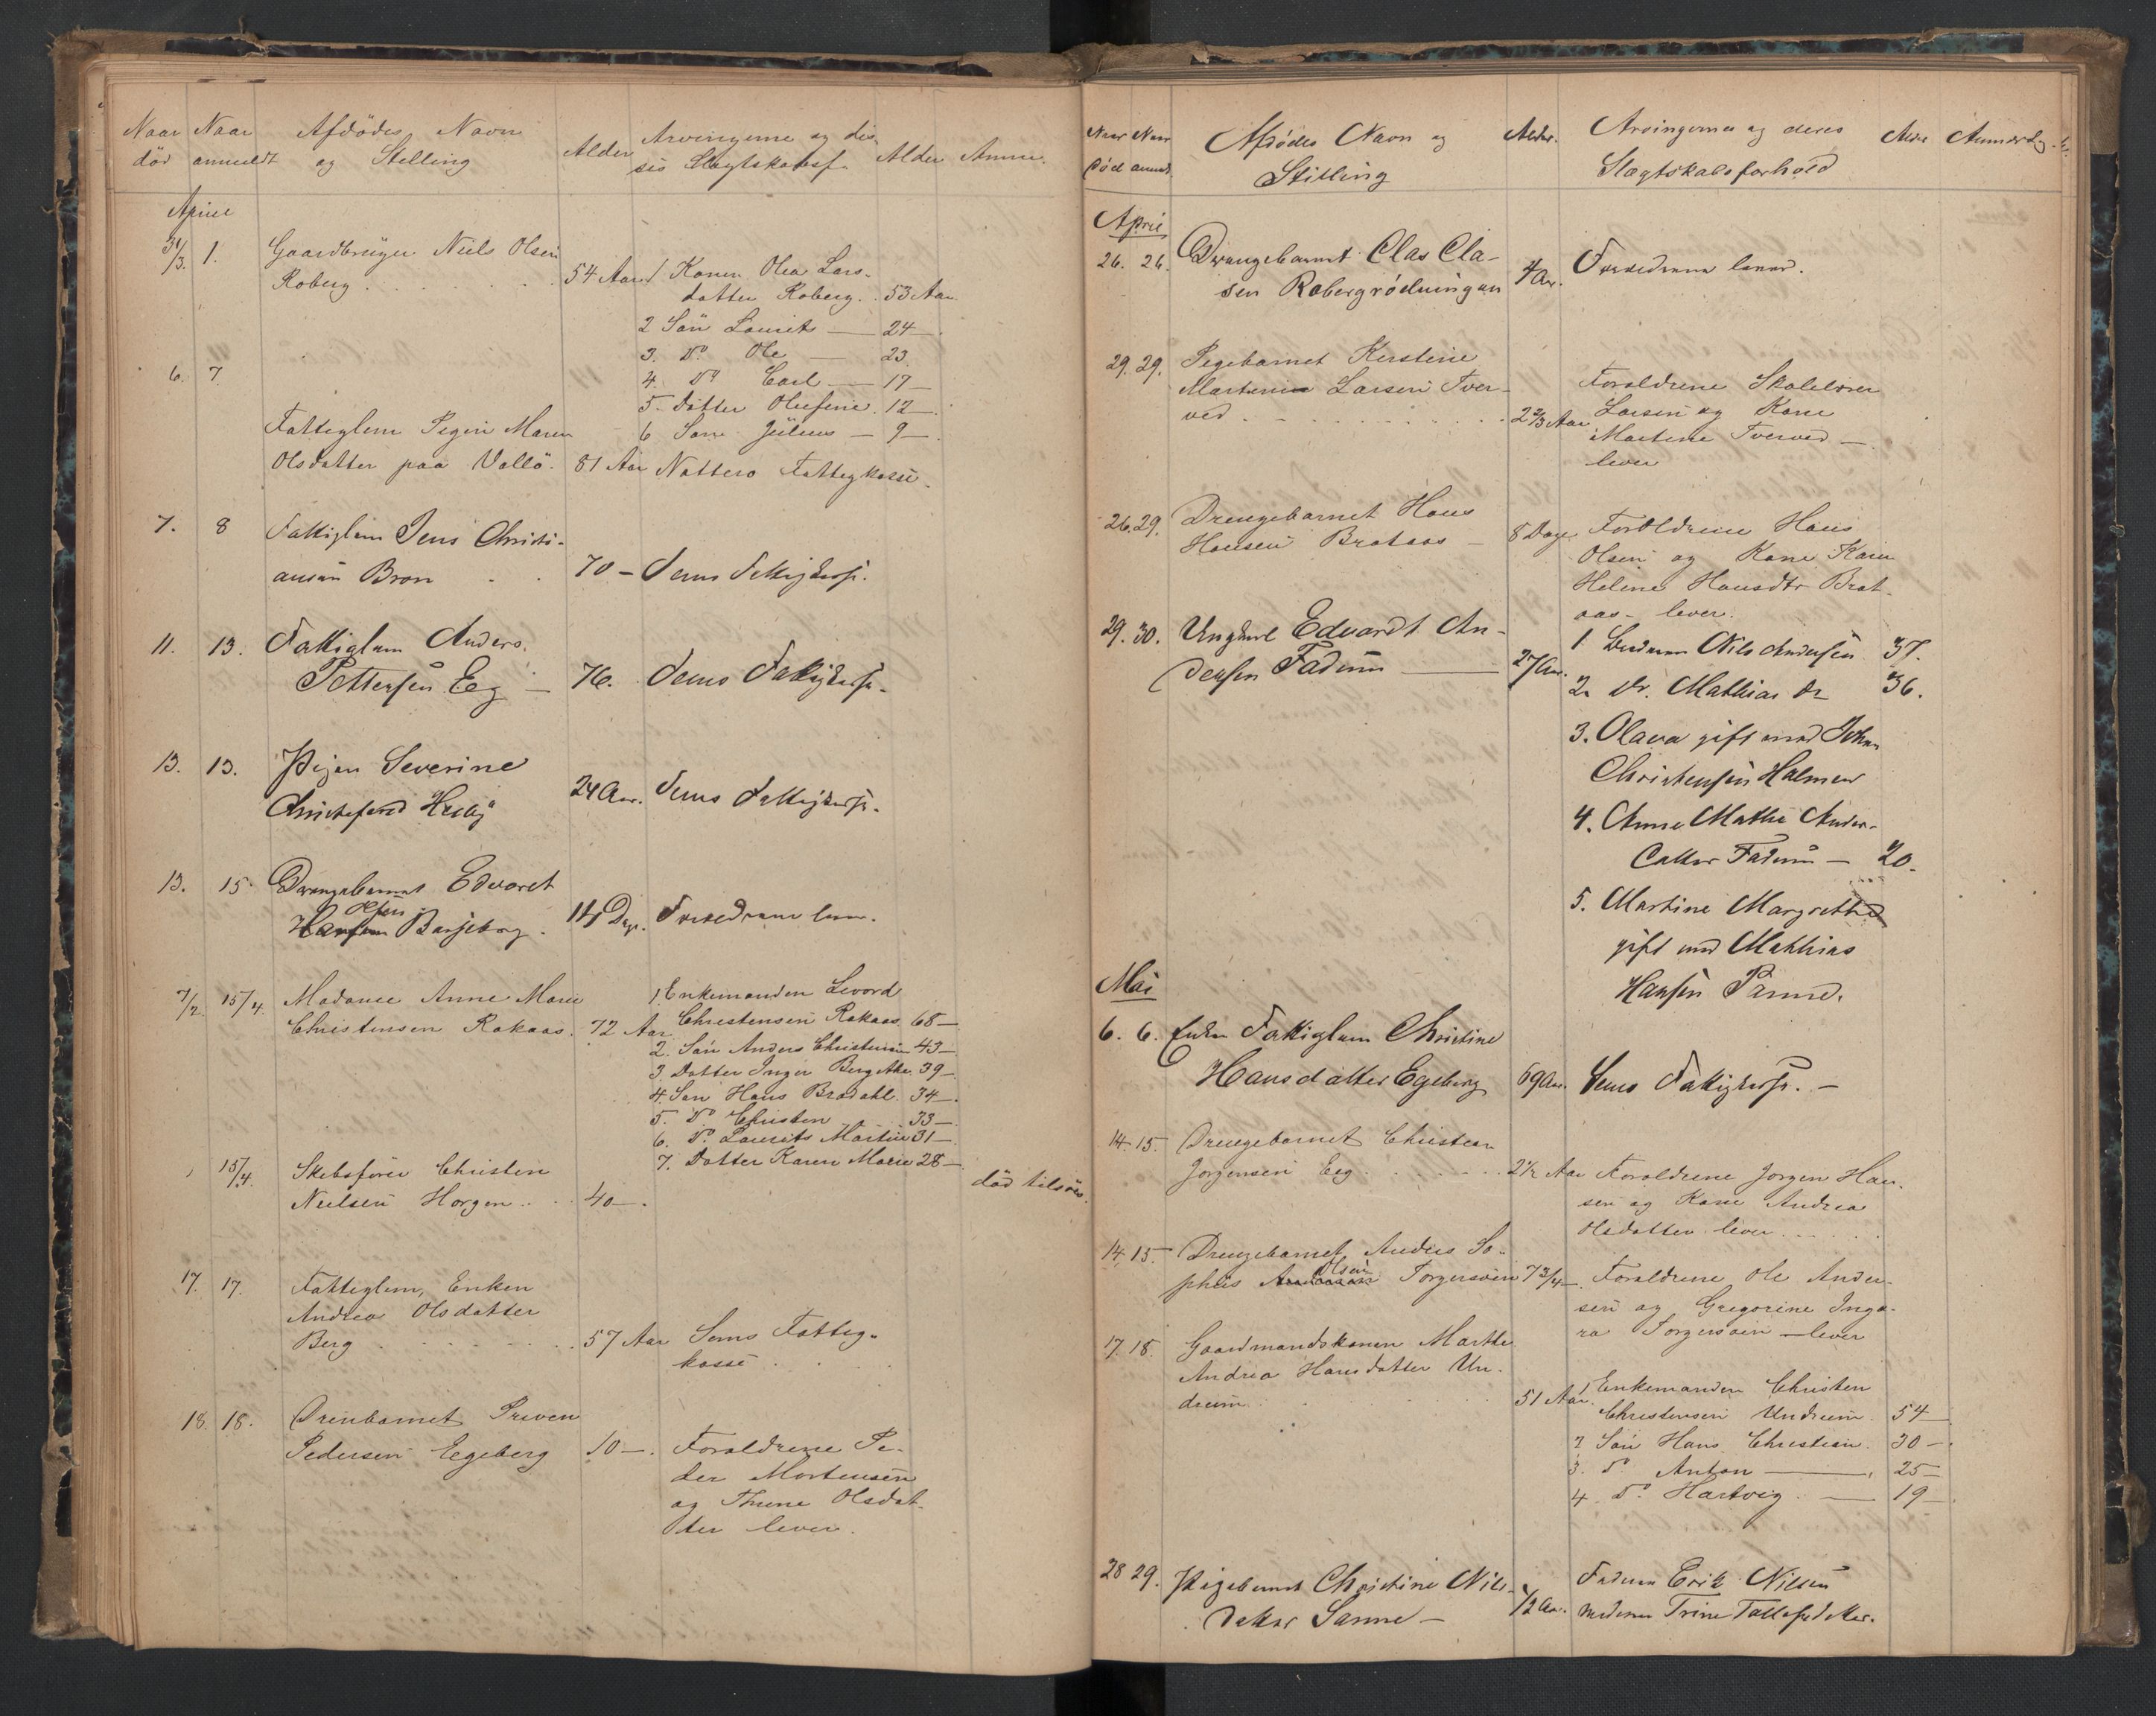 Naar Naar Afdödes Navn Alder Arvingerne og dis- Alder Anm.
död anmeldt og Stilling ses Slægtskabsf.
April
31/3. 1. Gaardbruger Niels Olsen
Roberg 54 Aar 1 Konen Olea Lars-
datter Roberg. 53 Aar.
2 Sön Laurits — 24 —
3. Do Ole — 23.
4. Do Carl — 17 —
5. Datter Olefine. 12 —
6 Sön Julius — 9 —
6. 7.
Fattiglem Pigen Maren
Olsdatter paa Vallö. 81 Aar Nöttero Fattigkasse.
7. 8 Fattiglem Jens Christi-
ansen Bron 70 — Sems Fattigkasse.
11. 13. Fattiglem Anders
Pettersen Eeg — 76. Sems Fattigkasse.
13. 13. Pigen Severine
24 Aar. Sems Fattigkasse.
13. 15. Drengebarnet Edvart
Olsen
Hansen 14 Dage. Foreldrene lever.
7/2. 15/4. Madame Anne Marie
Christensen Rakaas. 72 Aar
1. Enkemanden Sivord
Christensen Rakaas. 68 —
2. Sön Anders Christensen 43 —
3. Datter Inger 39 —
4. Sön Hans Brodahl. 34 —
5. Do Christen 33 —
6. Do Laurits Martin 31 —
7. Datter Karen Marie 28 —
15/4. Skibsförer Christen
Nielsen Horgen 40 — död tilsöes.
17. 17. Fattiglem, Enken
Andrea Olsdatter
Berg 57 Aar Sems Fattig-
kasse
18. 18. Pedersen Egeberg 10 —. Foraldrene Pe-
der Mortensen
og Thrine Olsdat-
ter lever.
Naar Naar Afdödes Navn og Alder. Arvingernes og deres Alder Anmærkg.
död anmdt. Stilling Slægtskabsforhold
April
26. 26. Drengebarnet Clas Cla-
sen Robergrödningen 4 Aar. Foreldrene lever.
29. 29. Pigebarnet Kirstine
Martinie Larsen Tver-
ved 2 2/3 Aar Foraldrene Skolelærer
Larsen og Kone
Martine Tverved —
lever
26. 29. Drengebarnet Hans
Hansen Brataas — 8 Dage. Foraldrene Hans
Olsen og Kone Karen
Helene Hansdtr Brat-
aas — lever.
29. 30. Ungkarl Edvardt An-
dersen Fadum — 27 Aar.
1 Broderen Nils Andersen 37.
2. Dr. Mathias Do 36.
3. Olava gift med Johan
Christensen Holmen
4. Anne Mathe Anders-
Datter Fadum — 20.
5. Martine Margrethe
gift med Mathias
Hansen
Mai
6. 6. Enken Fattiglem Christine
Hansdatter Egeberg 69 Aar. Sems Fattigkasse. —
14. 15. Drengebarnet Christian
Jorgensen Eeg 2 1/2 Aar Foraldrene Jorgen Han-
sen og Kone Andrea
Olsdatter lever
14. 15. Drengebarnet Anders So-
Olsen
phus Torgersöen 7 3/4 — Foraldrene Ole Ander-
sen og Gregorine Inga-
ra Torgersöen — lever
17. 18. Gaardmandskonen Marthe
Andrea Hansdatter Un-
drum 51 Aar.
1 Enkemanden Christen
Christensen Undrum. 54 —
2 Sön Hans Christian. 30 —.
3. Do Anton — 25 —
4. Do Hartvig — 19 —
28 29. Pigebarnet Christine Nils-
Datter Sanne — 1/2 Aar. Faderen Erik Nilsen
moderen Trine Tollefsdatter.